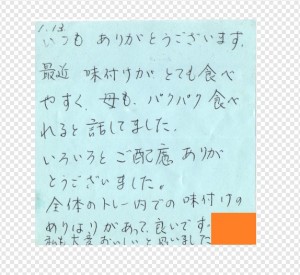 1.13
いつも ありがとうございます。
最近 味付けが とても食べ
やすく、母も、パクパク食べ
れると 話してました。
いろいろと ご配慮 ありが
とうございました。
全体のトレー内での味付けの
めりはりがあって、良いです
私も大変おいしいと思いました